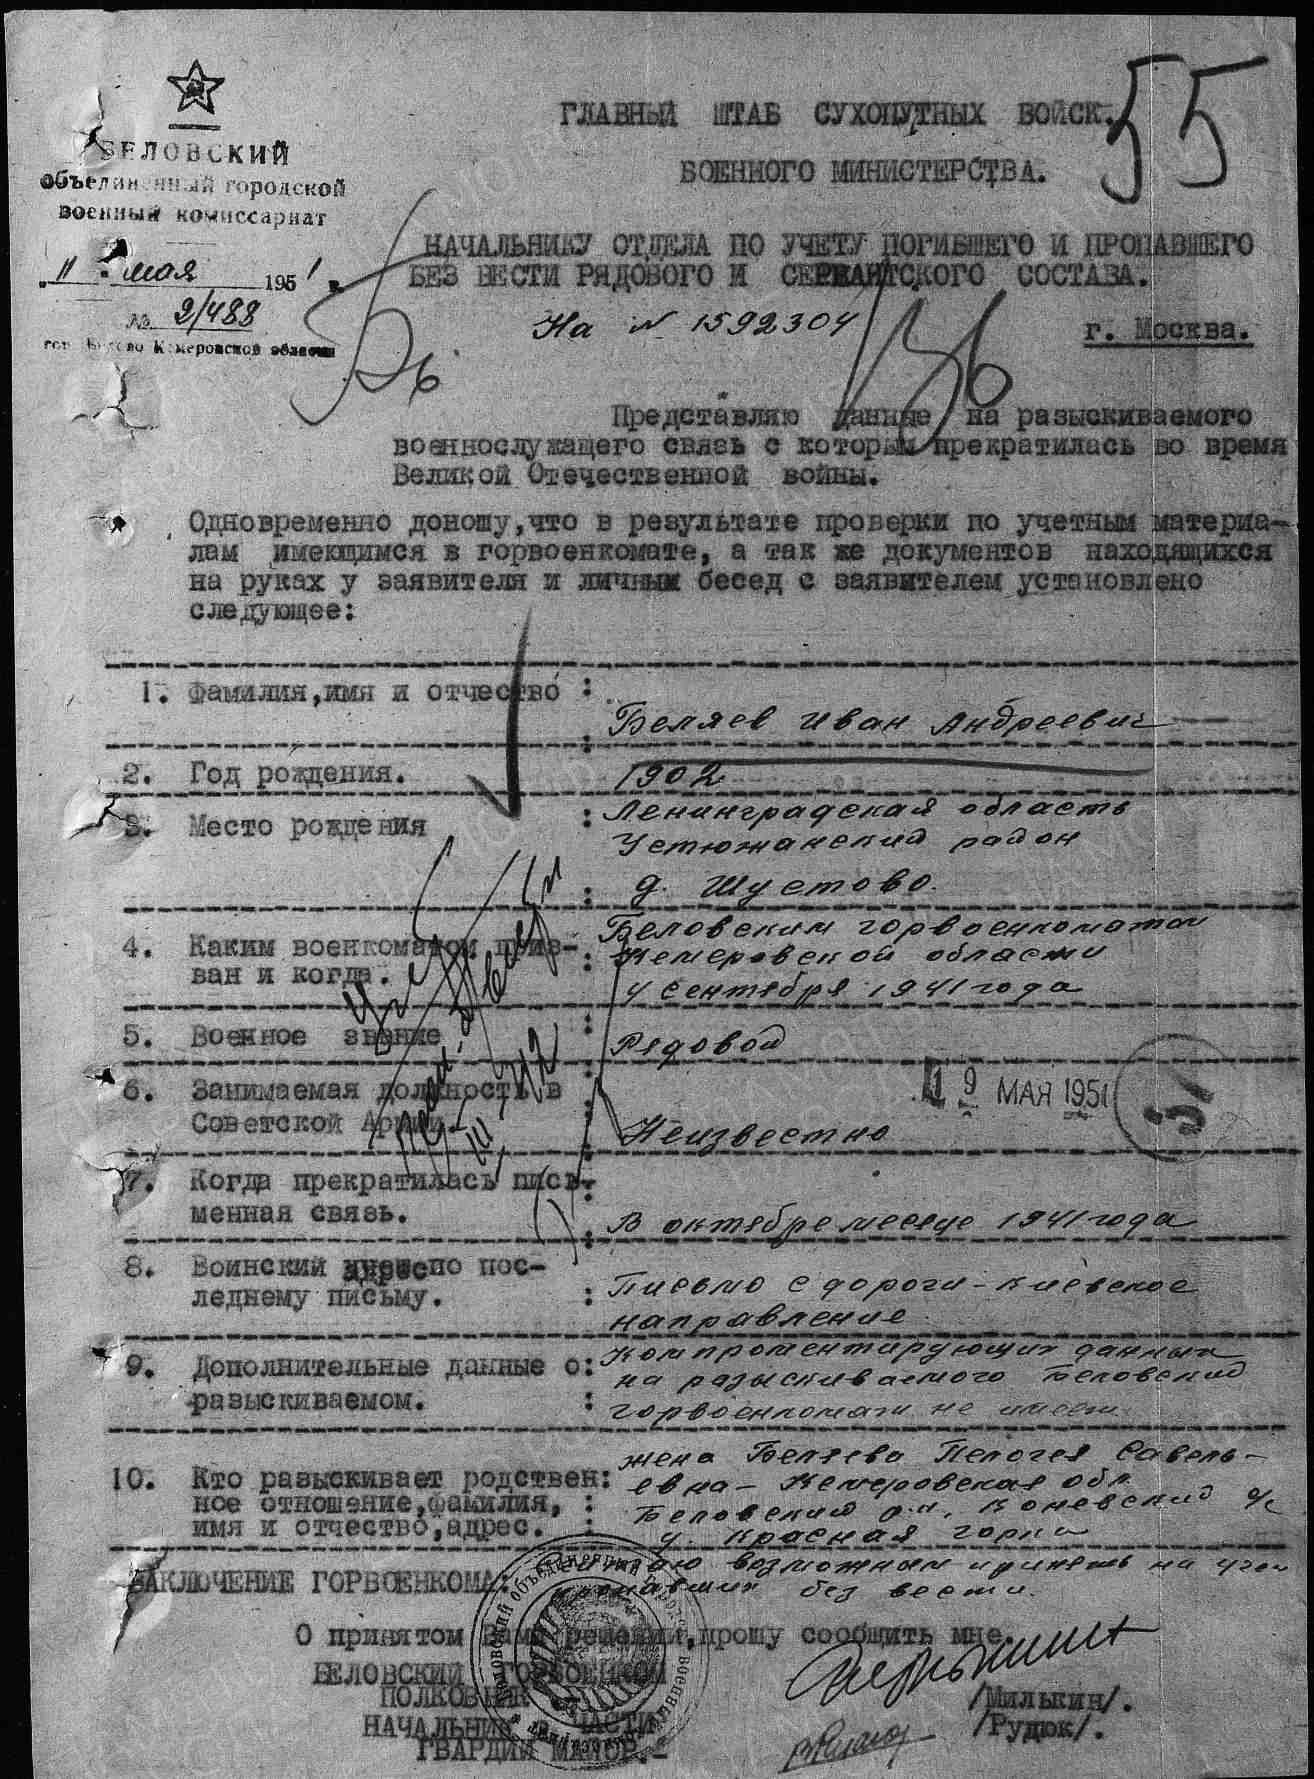 БЕЛОВСКИЙ
объединенный городской
военный комиссариат
„11“ мая 1951 г.
№ 2/488
гор. Белово Кемеровской области
ГЛАВНЫЙ ШТАБ СУХОПУТНЫХ ВОЙСК.
ВОЕННОГО МИНИСТЕРСТВА.
55
НАЧАЛЬНИКУ ОТДЕЛА ПО УЧЕТУ ПОГИБШЕГО И ПРОПАВШЕГО
БЕЗ ВЕСТИ РЯДОВОГО И СЕРЖАНТСКОГО СОСТАВА.
На № 1592304
г. Москва.
Представляю данные на разыскиваемого
военнослужащего связь с которым прекратилась во время
Великой Отечественной войны.
Одновременно доношу, что в результате проверки по учетным материа-
лам имеющимся в горвоенкомате, а так же документов находящихся
на руках у заявителя и личных бесед с заявителем установлено
следующее:
1. Фамилия, имя и отчество : Беляев Иван Андреевич
2. Год рождения. 1902
3. Место рождения : Ленинградская область
Устюжанский район
д. Шустово.
4. Каким военкоматом приз- Беловским горвоенкоматом
ван и когда. : Кемеровской области
4 сентября 1941 года
5. Военное звание : Рядовой
6. Занимаемая должность в
Советской Армии. : Неизвестно
19 МАЯ 1951
7. Когда прекратилась пись-
менная связь. : В октябре месяце 1941 года
8. Воинский адрес по пос-
леднему письму. : Письмо с дороги - Киевское
направление
9. Дополнительные данные о: Компрометирующих данных
разыскиваемом. : на разыскиваемого Беловский
горвоенкомат не имеет
10. Кто разыскивает родствен: жена Беляева Пелогея Савель-
ное отношение, фамилия, : евна - Кемеровская обл.
имя и отчество, адрес. : Беловский р-н, Коневский с/с
д. Красная горка
ЗАКЛЮЧЕНИЕ ГОРВОЕНКОМА: возможным принять на учет
пропавших без вести.
О принятом Вами решении, прошу сообщить мне.
БЕЛОВСКИЙ ГОРВОЕНКОМ
ПОЛКОВНИК - /Милькин/.
НАЧАЛЬНИК ЧАСТИ /Рудюк/.
ГВАРДИИ МАЙОР.-